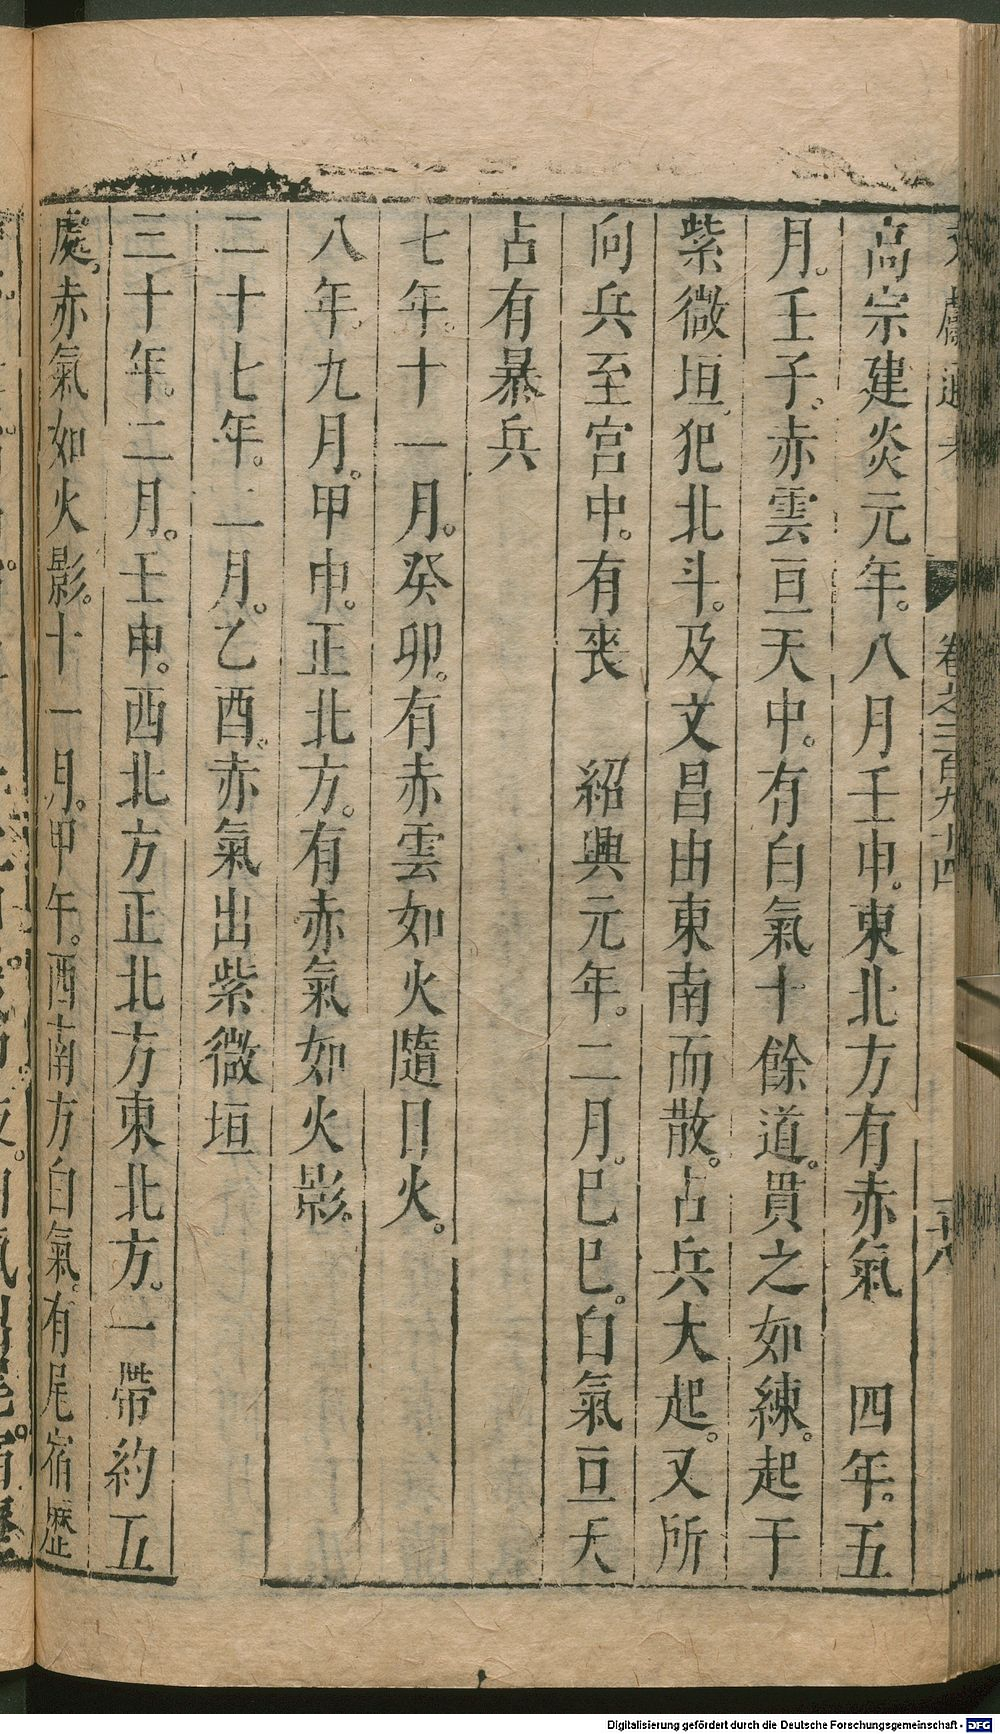 高宗建炎元年。八月壬申。東北方有赤氣　四年。五
月。壬子。赤雲亘天中。有白氣十餘道。貫之如練。起于
紫微垣。犯北斗。及文昌由東南而散。占兵大起。又所
向兵至宮中。有喪　紹興元年。二月。巳巳。白氣亘天
占有暴兵
七年。十一月。癸卯。有赤雲如火隨日火。
八年。九月。甲申。正北方。有赤氣如火影。
二十七年。二月。乙酉。赤氣出紫微垣
三十年。二月。壬申。西北方正北方東北方。一帶約五
處。赤氣如火影。十一月。甲午。西南方白氣。有尾宿歷
卷之二百九十四
Digitalisierung gefördert durch die Deutsche Forschungsgemeinschaft - DFG